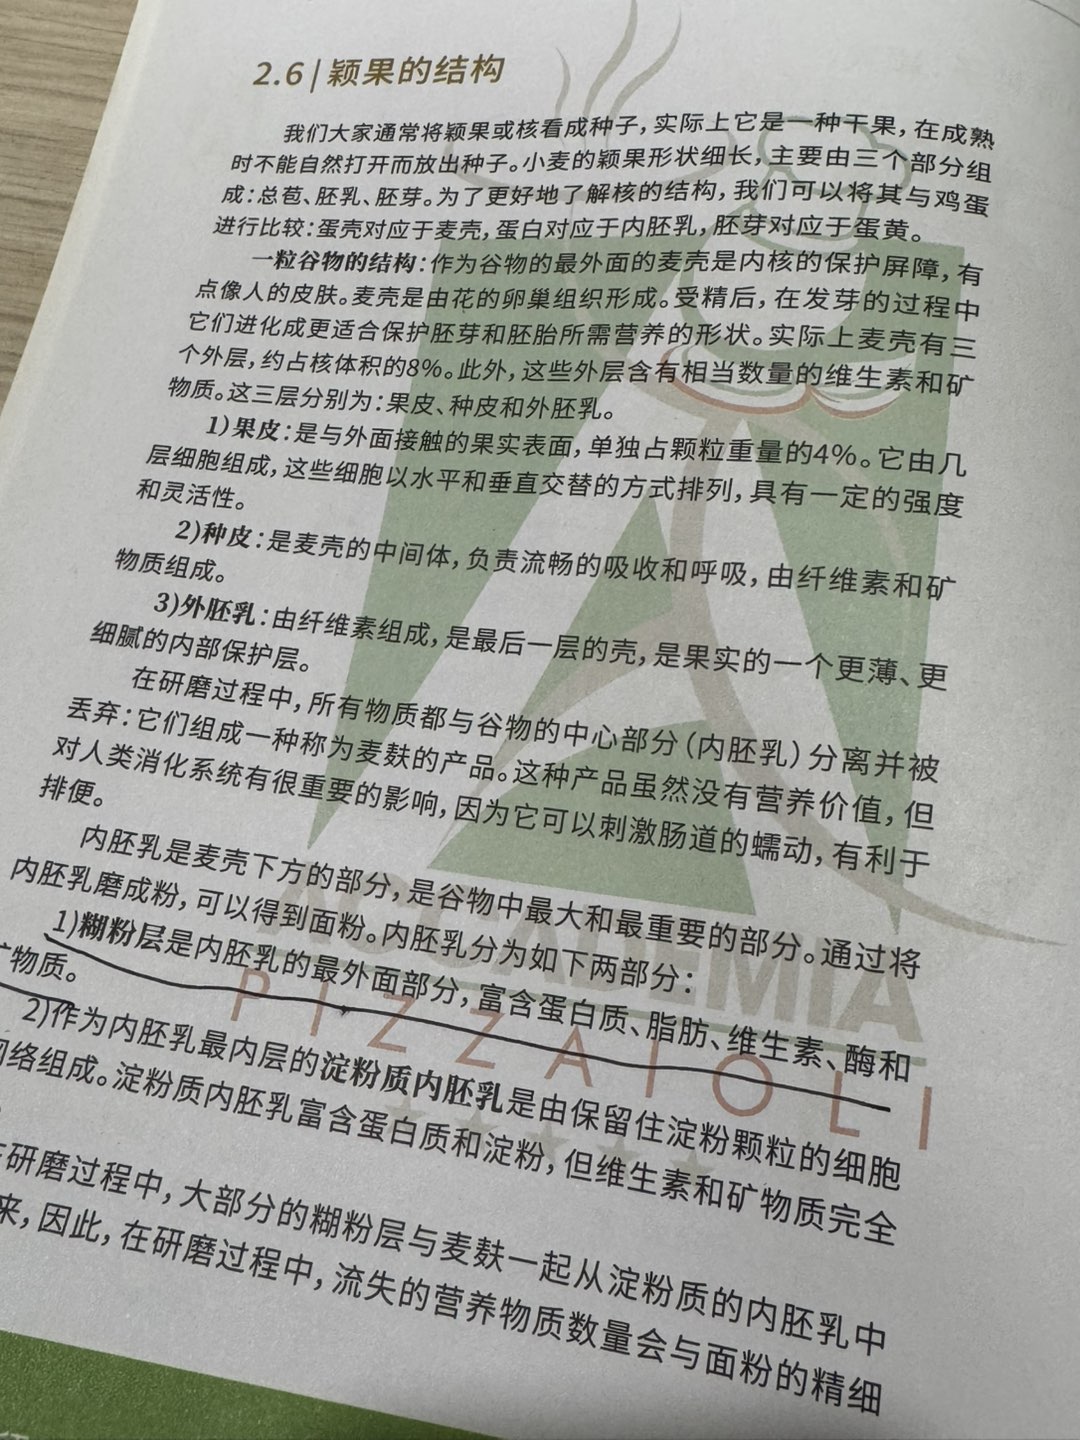 2.6|颖果的结构
我们大家通常将颖果或核看成种子，实际上它是一种干果，在成熟
时不能自然打开而放出种子。小麦的颖果形状细长，主要由三个部分组
成：总苞、胚乳、胚芽。为了更好地了解核的结构，我们可以将其与鸡蛋
进行比较：蛋壳对应于麦壳，蛋白对应于内胚乳，胚芽对应于蛋黄。
一粒谷物的结构：作为谷物的最外面的麦壳是内核的保护屏障，有
点像人的皮肤。麦壳是由花的卵巢组织形成。受精后，在发芽的过程中
它们进化成更适合保护胚芽和胚胎所需营养的形状。实际上麦壳有三
个外层，约占核体积的8%。此外，这些外层含有相当数量的维生素和矿
物质。这三层分别为：果皮、种皮和外胚乳。
1)果皮：是与外面接触的果实表面，单独占颗粒重量的4%。它由几
层细胞组成，这些细胞以水平和垂直交替的方式排列，具有一定的强度
和灵活性。
2)种皮：是麦壳的中间体，负责流畅的吸收和呼吸，由纤维素和矿
物质组成。
3)外胚乳：由纤维素组成，是最后一层的壳，是果实的一个更薄、更
细腻的内部保护层。
在研磨过程中，所有物质都与谷物的中心部分（内胚乳）分离并被
丢弃：它们组成一种称为麦麸的产品。这种产品虽然没有营养价值，但
对人类消化系统有很重要的影响，因为它可以刺激肠道的蠕动，有利于
排便。
内胚乳是麦壳下方的部分，是谷物中最大和最重要的部分。通过将
内胚乳磨成粉，可以得到面粉。内胚乳分为如下两部分：
1)糊粉层是内胚乳的最外面部分，富含蛋白质、脂肪、维生素、酶和
矿物质。
2)作为内胚乳最内层的淀粉质内胚乳是由保留住淀粉颗粒的细胞
网络组成。淀粉质内胚乳富含蛋白质和淀粉，但维生素和矿物质完全
在研磨过程中，大部分的糊粉层与麦麸一起从淀粉质的内胚乳中
来，因此，在研磨过程中，流失的营养物质数量会与面粉的精细
ACCADEMIA
PIZZAIOLI